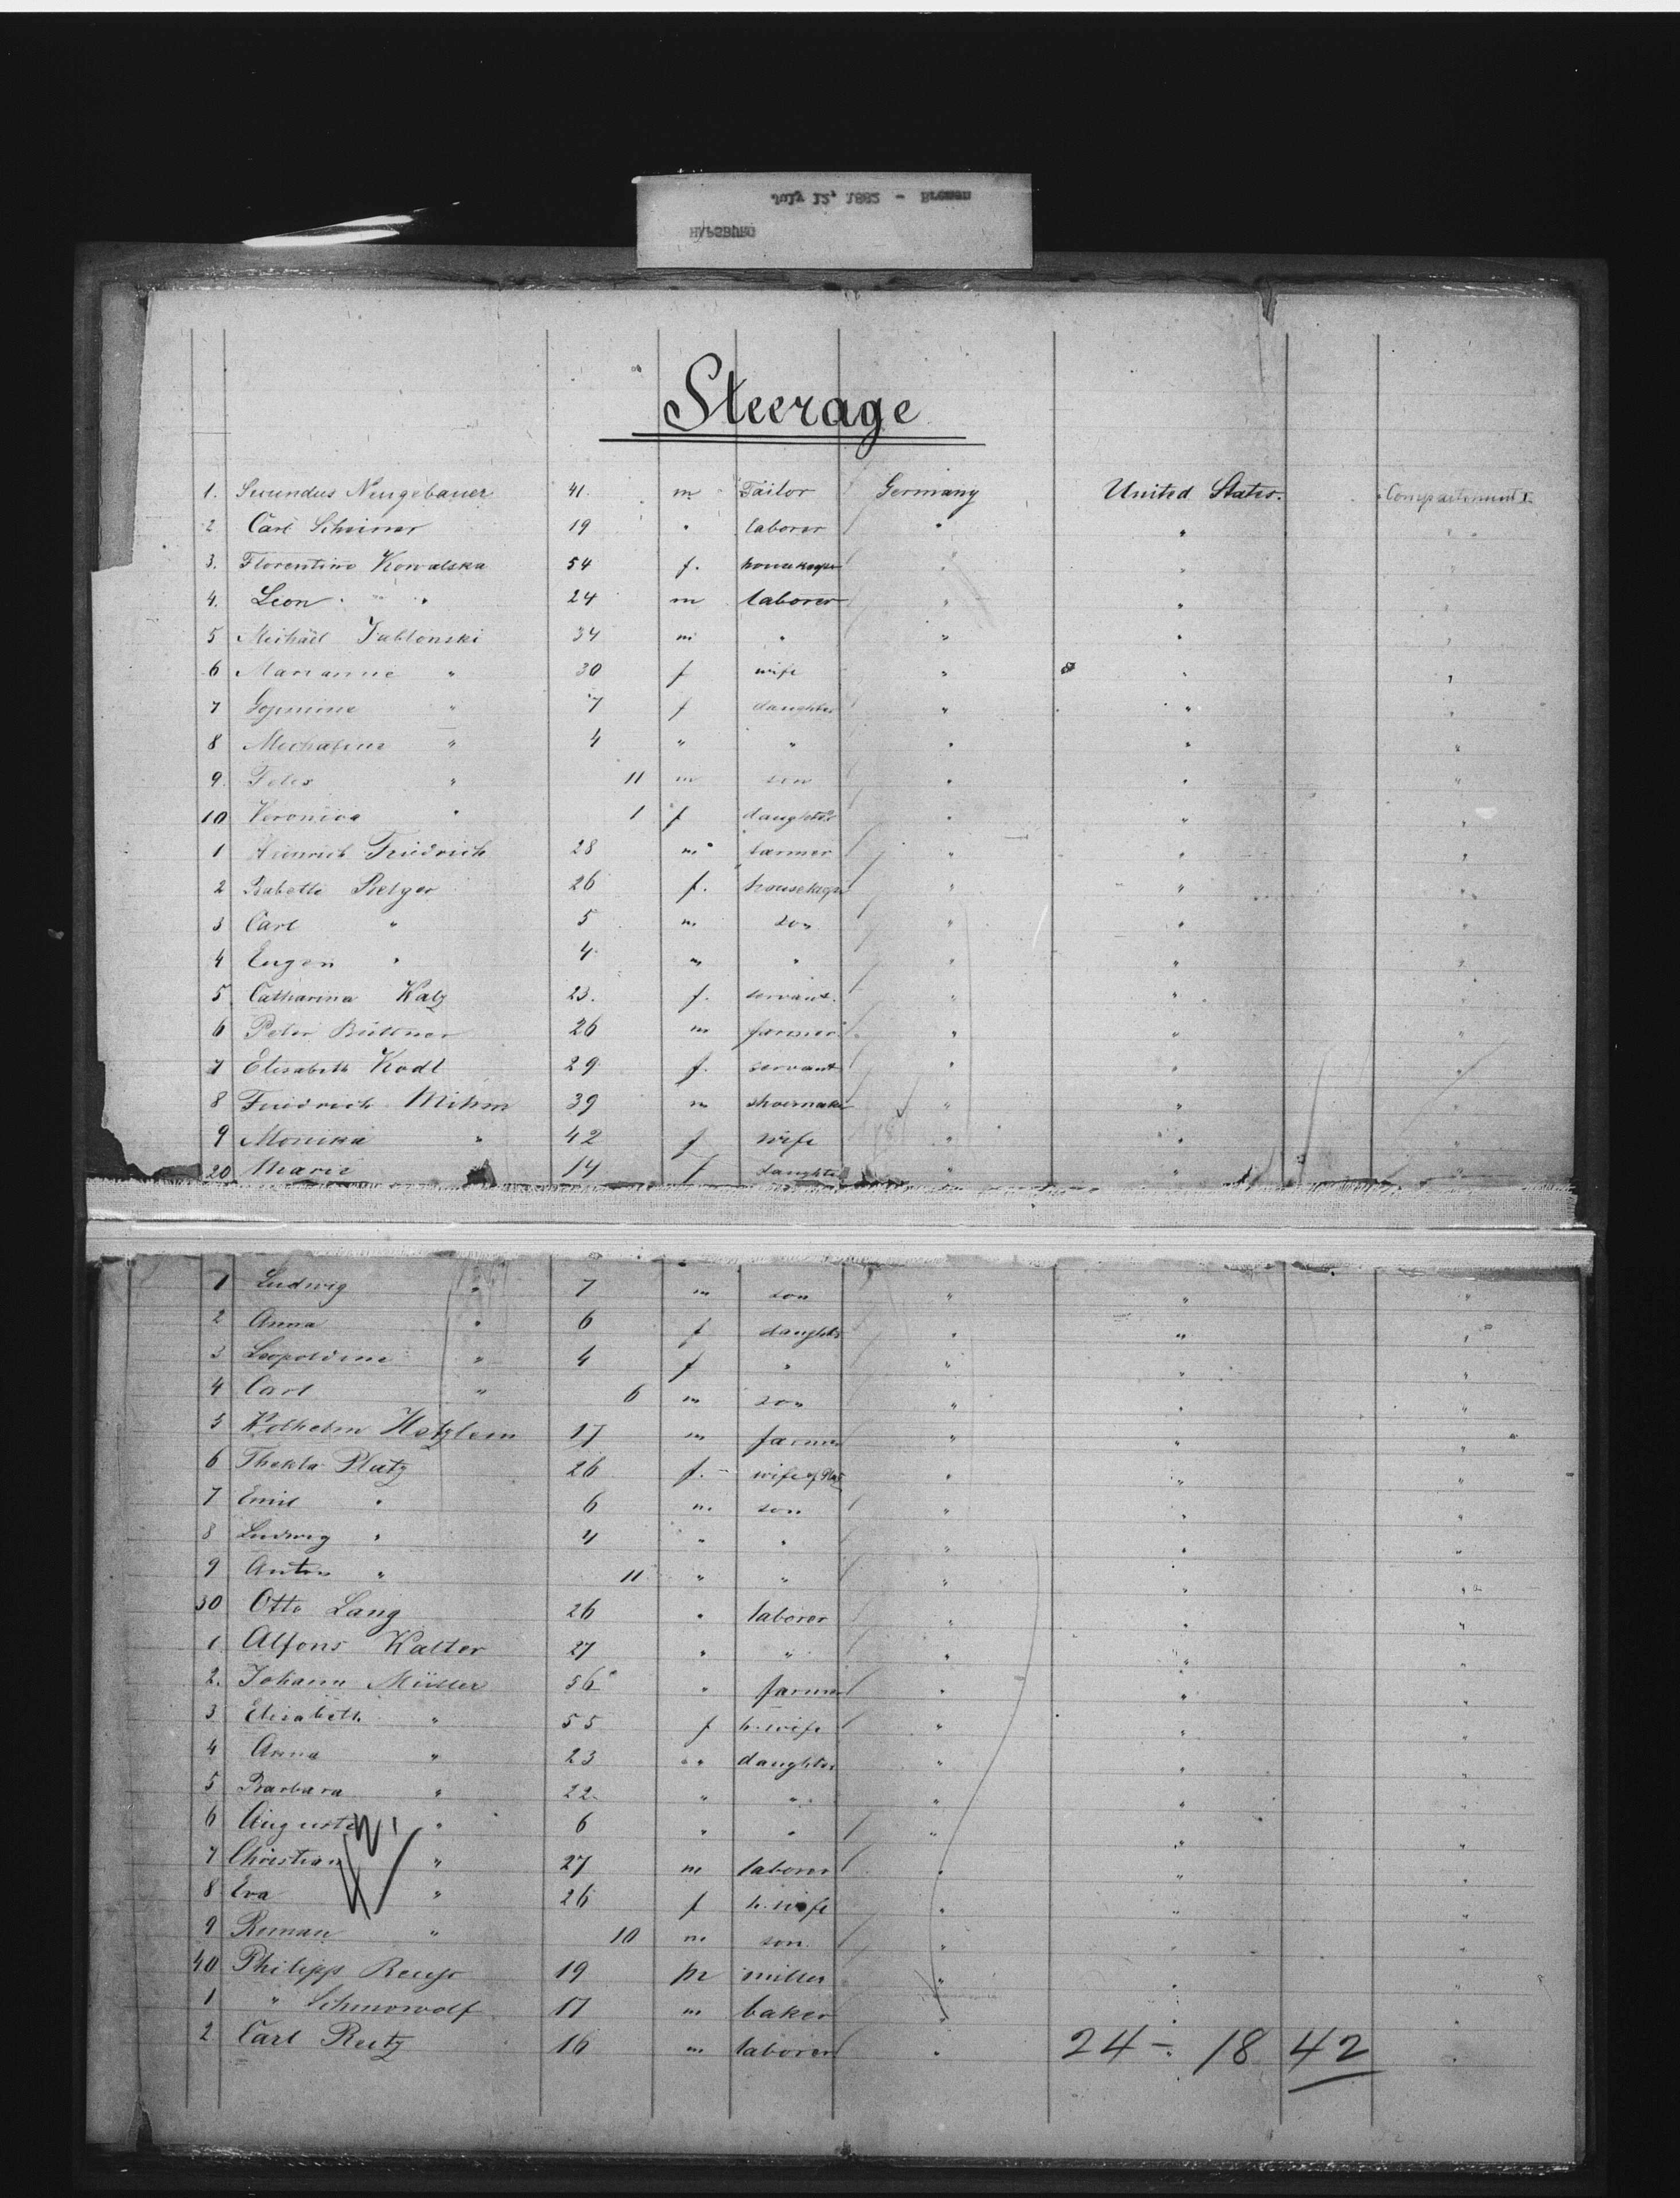 July 12, 1882 - Bremen
HAPSBURG
Steerage
1. Secundus Neugebauer 41. m Tailor Germany United States. Compartement I.
2 Carl 19 " laborer " " "
3. Florentine Kowalska 54 f. " " "
4. Leon " 24 m laborer " " "
5 Michael Jablonski 34 m " " " "
6 Marianne " 30 f wife " " "
7 " 7 f daughter " " "
8 " 4 " " " " "
9. Felix " 11 m son " " "
10 Veronica " 1 f daughter " " "
1 Heinrich Friedrich 28 m farmer " " "
2 Babette 26 f. housekeepr " " "
3 Carl " 5 m son " " "
4 Eugen " 4 m " " " "
5 Catharina Katz 23. f. servant. " " "
6 Peter Büttner 26 m farmer " " "
7 Elisabeth Kodl 29 f. servant " " "
8 Friedrich Mihm 39 m shoemaker " " "
9 Monika " 42 f wife " " "
20 Marie " 14 f daughter " " "
1 Ludwig " 7 m son " " "
2 Anna " 6 f daughter " " "
3 Leopoldine " 4 f " " " "
4 Carl " 6 m son " " "
5 Wilhelm Hetzlein 17 m farmer " " "
6 Thekla Platz 26 f. wife of Platz " " "
7 Emil " 6 m. son " " "
8 Ludwig " 4 " " " " "
9 Anton " 11 " " " " "
30 Otto Lang 26 " laborer " " "
1. Alfons Kalter 27 " " " " "
2. Johann Müller 56 " farmer " " "
3 Elisabeth " 55 f h. wife " " "
4 Anna " 23 " daughter " " "
5 Barbara " 22 " " " " "
6 Auguste " 6 " " " " "
7 Christian " 27 m laborer " " "
8 Eva " 26 f h. wife " " "
9 Roman " 10 m son. " " "
40 Philipp 19 m miller " " "
1 " 17 m baker " " "
2 Carl Reitz 16 m laborer " 24 - 18 42 "